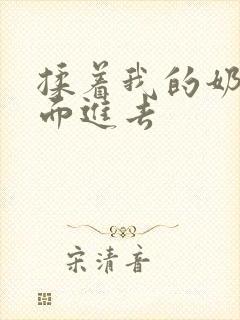 揉着我的奶
而進去
宋清音